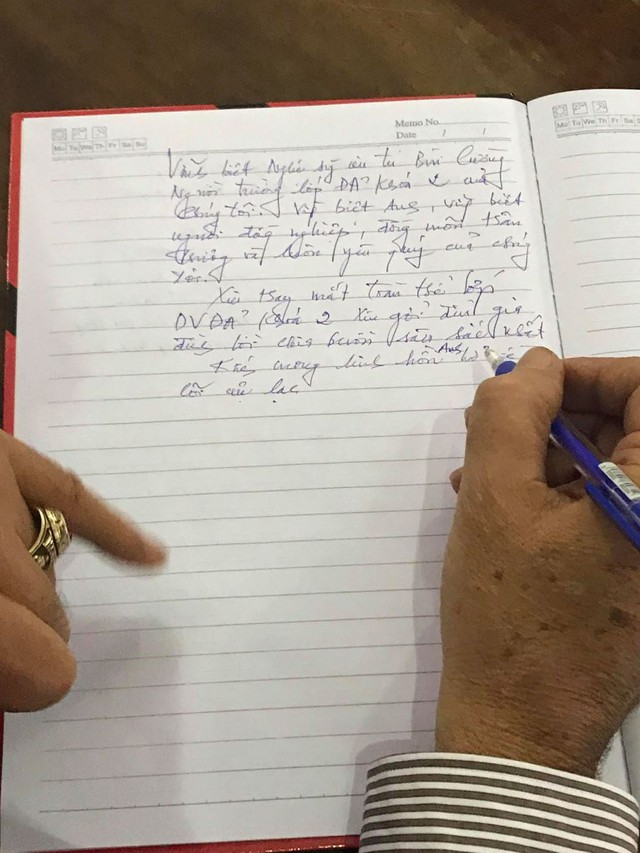 Memo No.
Date / /
Mo Tu We Th Fr Sa Su
Mo Tu We Th Fr Sa
Vĩnh biệt Nghệ sỹ ưu tú Bùi Cường
Người trưởng lớp ĐA Khoá 2 của
chúng tôi. Vĩnh biệt Anh, vĩnh biệt
người đồng nghiệp, đồng môn thân
thương và luôn yêu quý của chúng
tôi.
Xin thay mặt toàn thể lớp
DVĐA Khoá 2 xin gởi đến gia
đình lời chia buồn sâu sắc nhất
Kính mong linh hồn Anh
cõi cực lạc